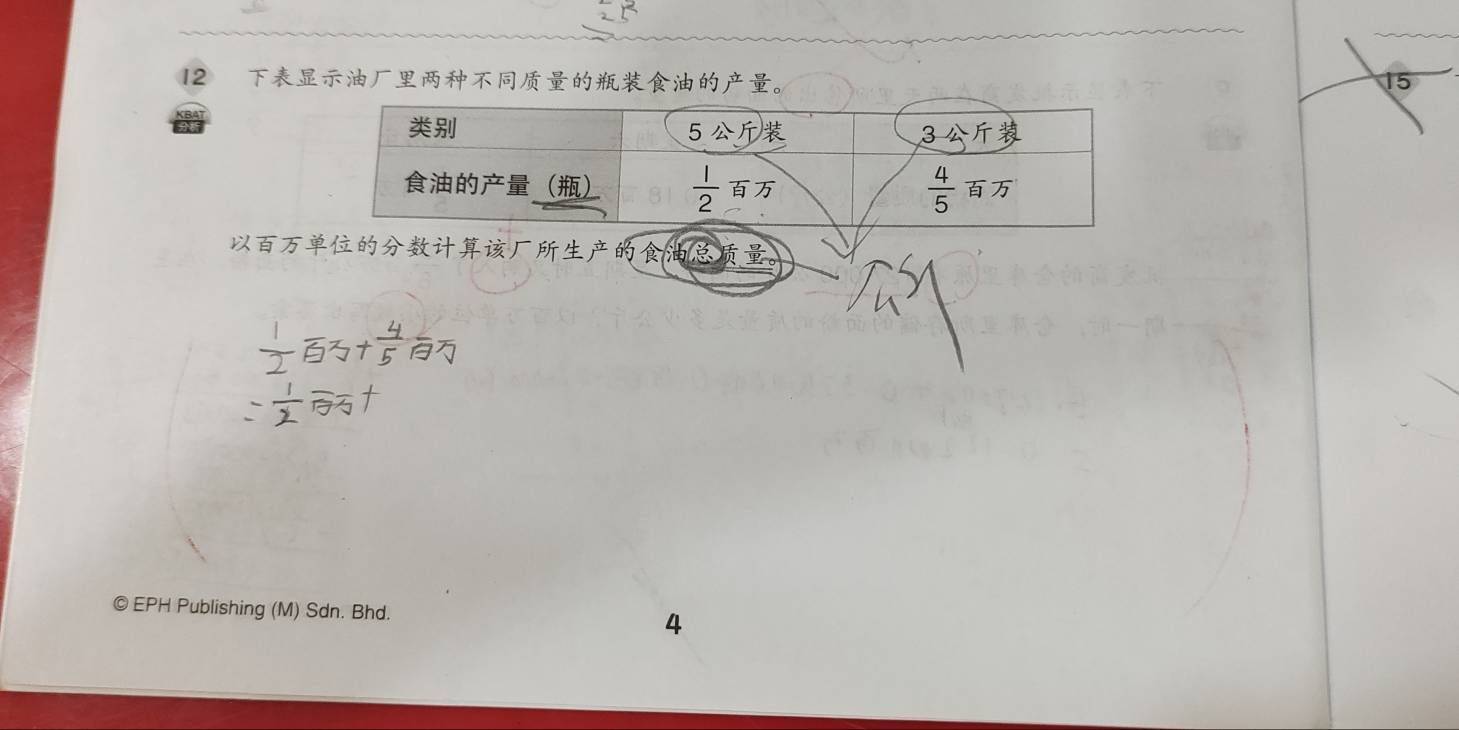 12 下表显示油厂里两种不同质量的瓶装食油的产量。
KBAT
分析
类别 5 公斤装 3 公斤装
食油的产量（瓶） 1/2 百万 4/5 百万
以百万单位的分数计算该厂所生产的食油总质量。
1/2 百万 + 4/5 百万
= 1/2 百万 +
© EPH Publishing (M) Sdn. Bhd.
4
15